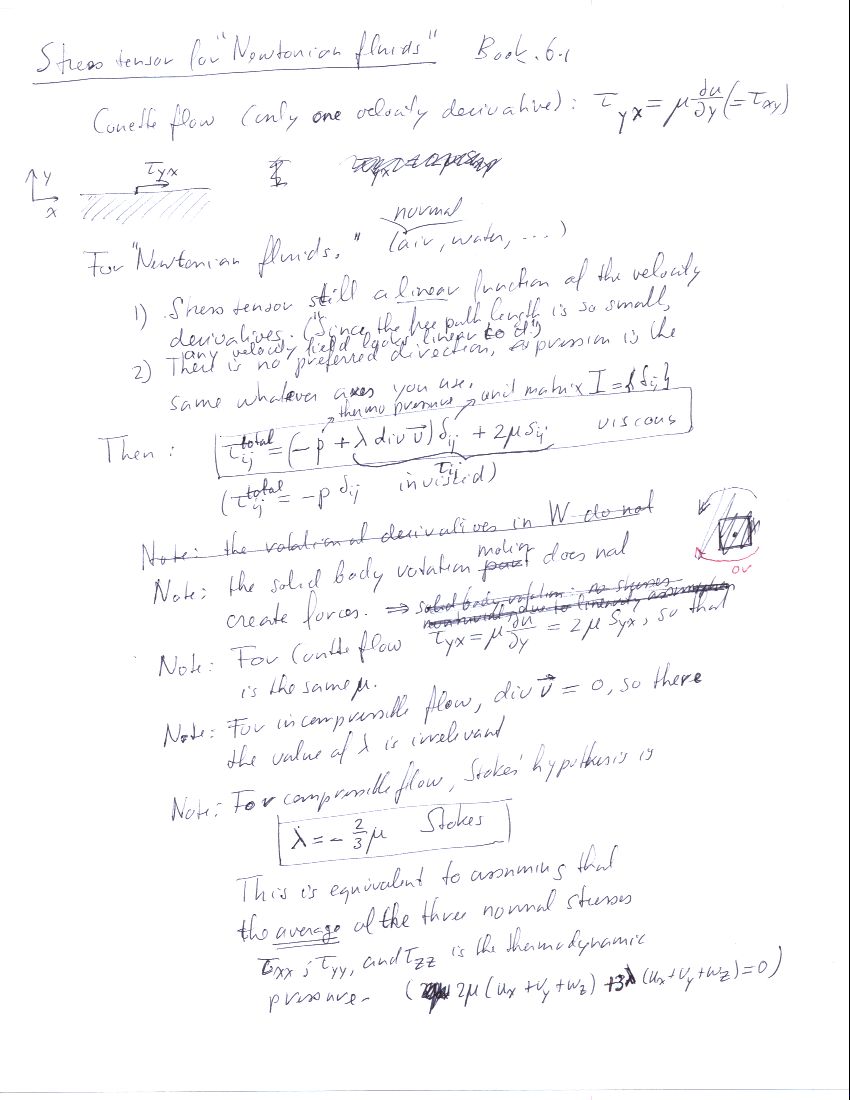 Stress tensor for "Newtonian fluids" Book. 6.1
Couette flow (only one velocity derivative): τyx = μ ∂u/∂y (= τxy)
y
τyx
x
normal
For "Newtonian fluids," (air, water, ...)
1) Stress tensor still a linear function of the velocity
derivatives. (Since the free path length is so small,
any velocity field looks linear to it)
2) There is no preferred direction, expression is the
same whatever axes you use.
thermo pressure unit matrix I = {δij}
Then: τij^total = (-p + λ div v⃗) δij + 2μ Sij viscous
τij
(τij^total = -p δij inviscid)
Note: the rotational derivatives in W do not
Note: the solid body rotation motion does not
create forces. ⇒ solid body rotation: no stresses
due to linearity assumption
ov
Note: For Couette flow τyx = μ ∂u/∂y = 2μ Syx, so that
is the same μ.
Note: For incompressible flow, div v⃗ = 0, so there
the value of λ is irrelevant
Note: For compressible flow, Stokes' hypothesis is
λ = - 2/3 μ Stokes
This is equivalent to assuming that
the average of the three normal stresses
τxx, τyy, and τzz is the thermodynamic
pressure. (2μ (ux + vy + wz) + 3λ (ux + vy + wz) = 0)